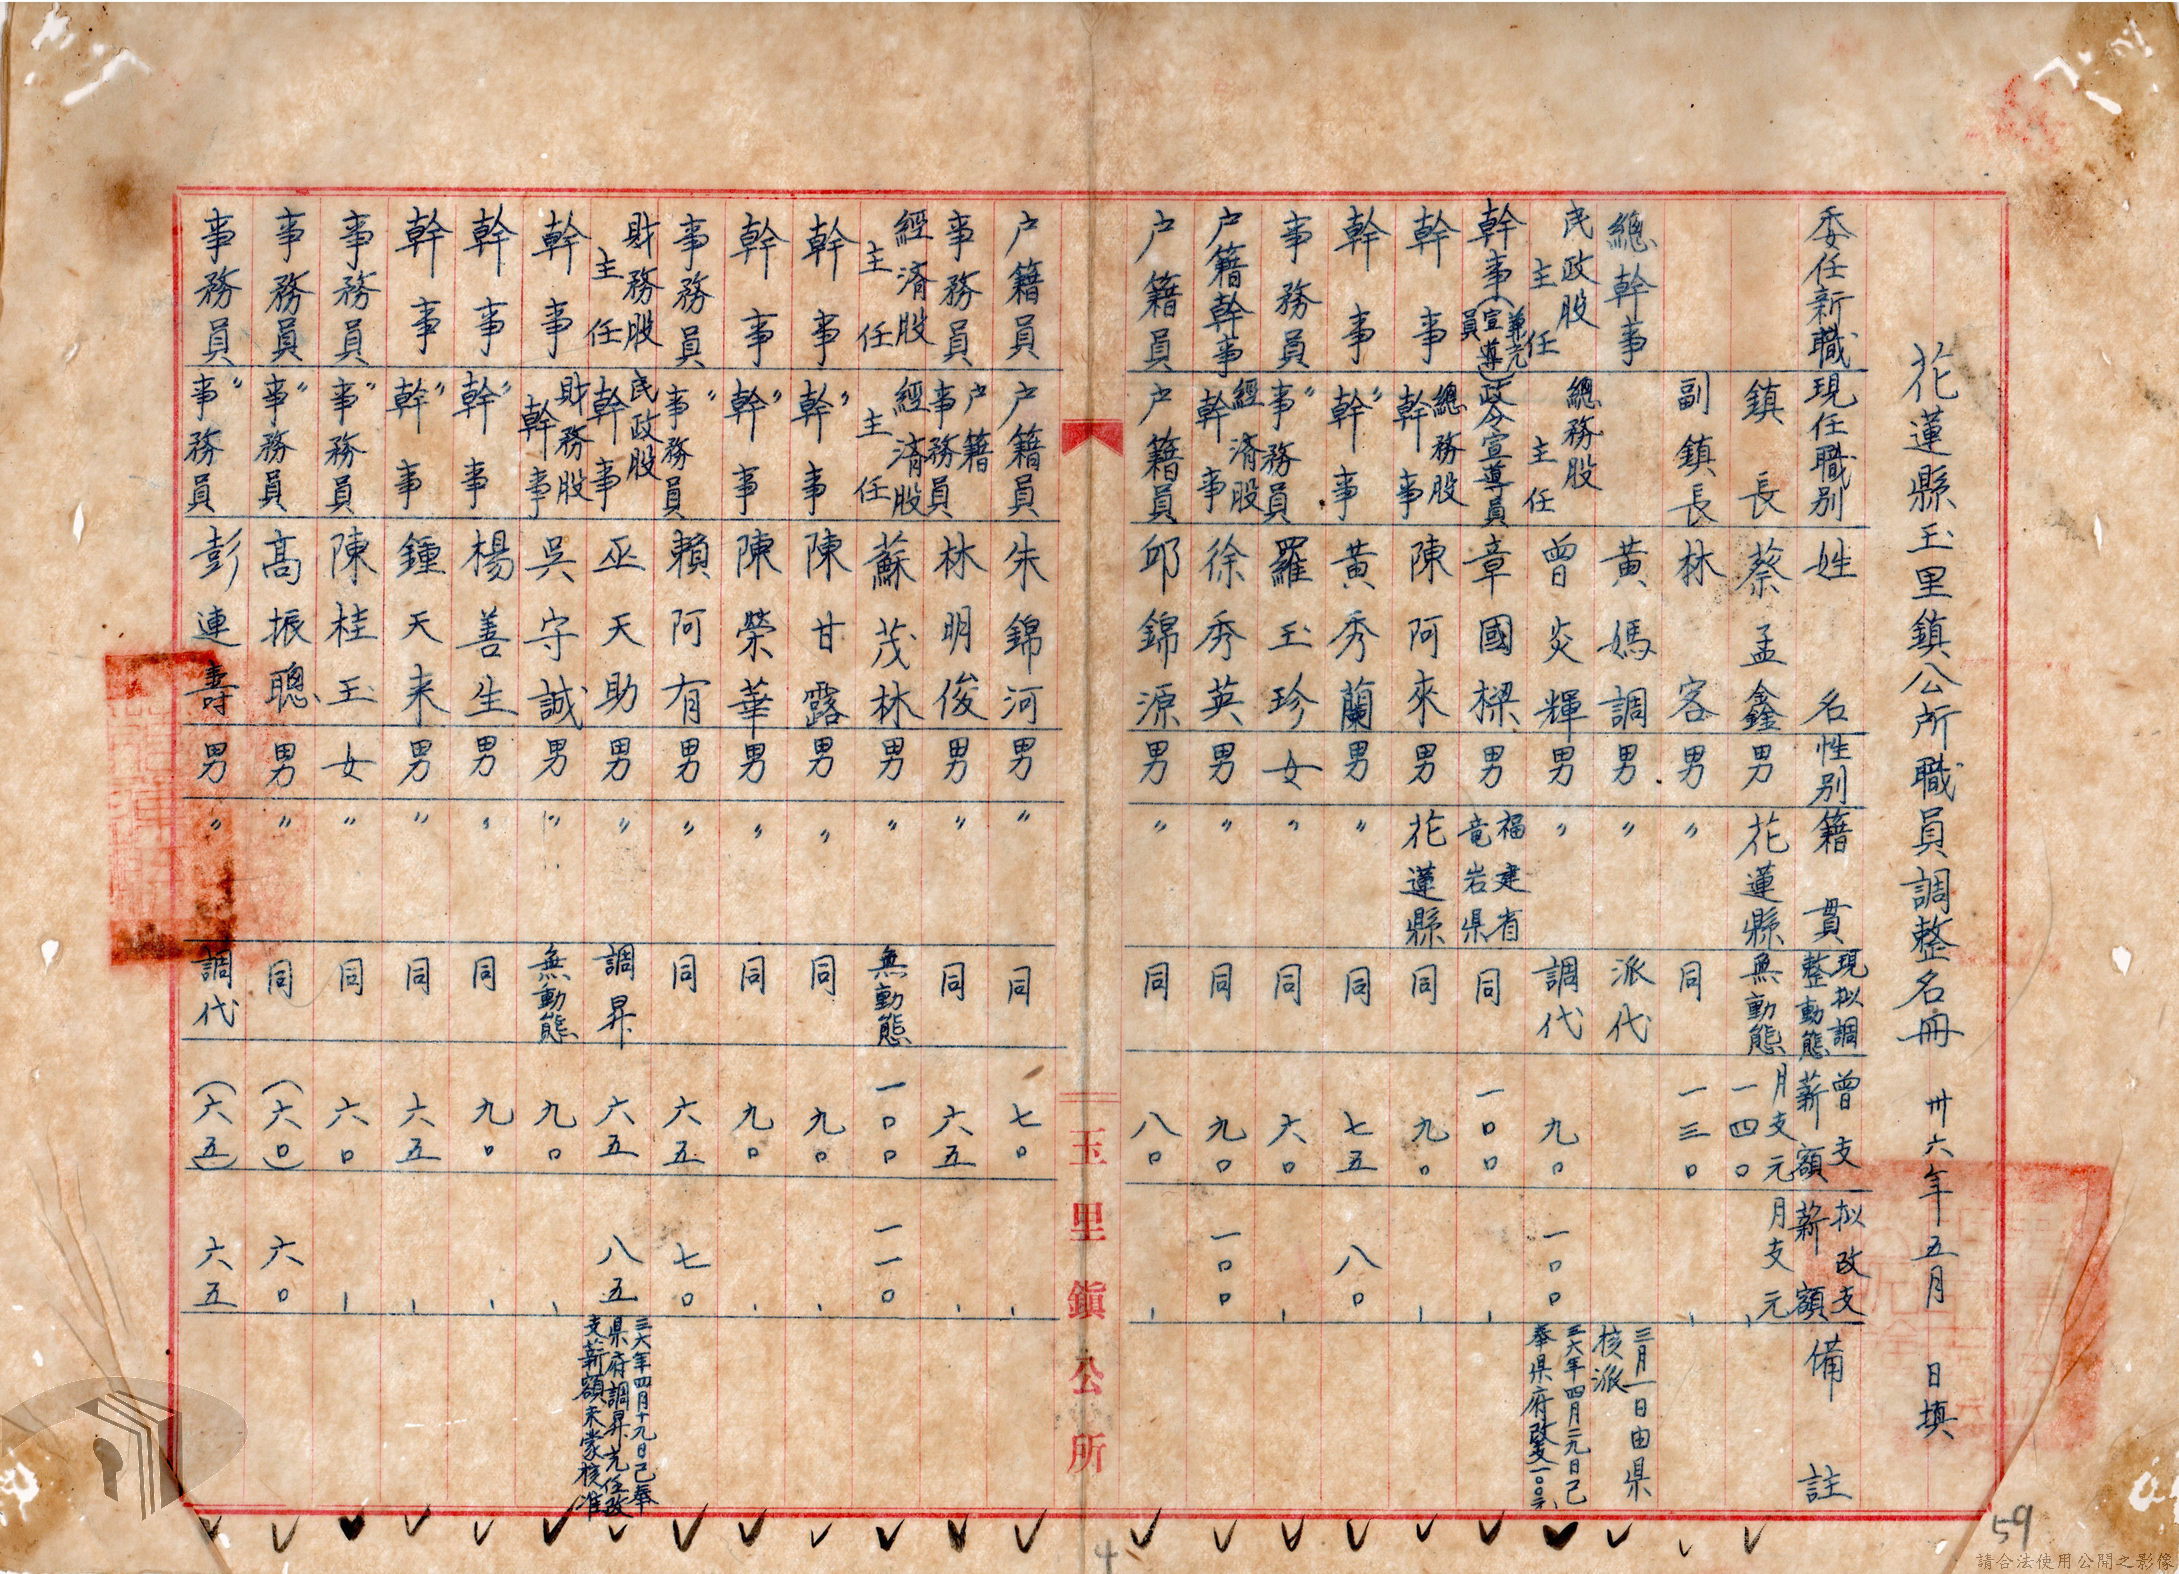 花蓮縣玉里鎮公所職員調整名冊 卅六年五月 日填
委任新職 現任職別 姓名 性別 籍貫 現拟調整動態 曾支薪額 拟改支薪額 備註
鎮長 蔡孟鑫 男 花蓮縣 無動態 月支一四〇元 月支、元
副鎮長 林客 男 〃 同 一三〇 、
總幹事 黃媽調 男 〃 派代 三月一日由県核派
民政股主任 總務股主任 曾炎輝 男 〃 調代 九〇 一〇〇 三六年四月二九日已奉県府改支一〇〇元
幹事(兼充宣導員) 政令宣導員 章國樑 男 福建省竜岩県 同 一〇〇 、
幹事 總務股幹事 陳阿來 男 花蓮縣 同 九〇 、
幹事 〃幹事 黃秀蘭 男 〃 同 七五 八〇
事務員 〃事務員 羅玉珍 女 〃 同 六〇 、
户籍幹事 經濟股幹事 徐秀英 男 〃 同 九〇 一〇〇
户籍員 户籍員 邱錦源 男 〃 同 八〇 、
玉里鎮公所
户籍員 户籍員 朱錦河 男 〃 同 七〇 、
事務員 户籍事務員 林明俊 男 〃 同 六五 、
經濟股主任 經濟股主任 蘇茂林 男 〃 無動態 一〇〇 一一〇
幹事 〃幹事 陳甘露 男 〃 同 九〇 、
幹事 〃幹事 陳榮華 男 〃 同 九〇 、
事務員 〃事務員 賴阿有 男 〃 同 六五 七〇
財務股主任 民政股幹事 巫天助 男 〃 調昇 六五 八五 三六年四月十九日已奉県府調昇充任改支薪額未蒙核准
幹事 財務股幹事 吳守誠 男 〃 無動態 九〇 、
幹事 〃幹事 楊善生 男 〃 同 九〇 、
幹事 〃幹事 鍾天来 男 〃 同 六五 、
事務員 〃事務員 陳桂玉 女 〃 同 六〇 、
事務員 〃事務員 高振聰 男 〃 同 (六〇) 六〇
事務員 〃事務員 彭連壽 男 〃 調代 (六五) 六五
4
59
請合法使用公開之影像